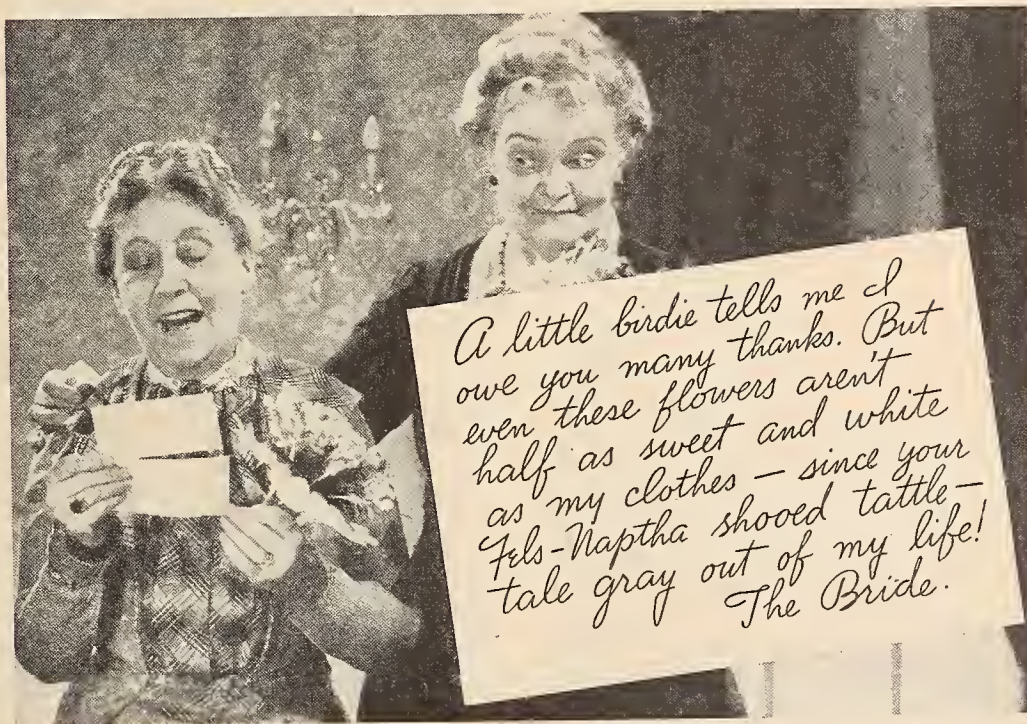 A little birdie tells me I
owe you many thanks. But
even these flowers aren't
half as sweet and white
as my clothes — since your
Fels-Naptha shooed tattle—
tale gray out of my life!
The Bride.